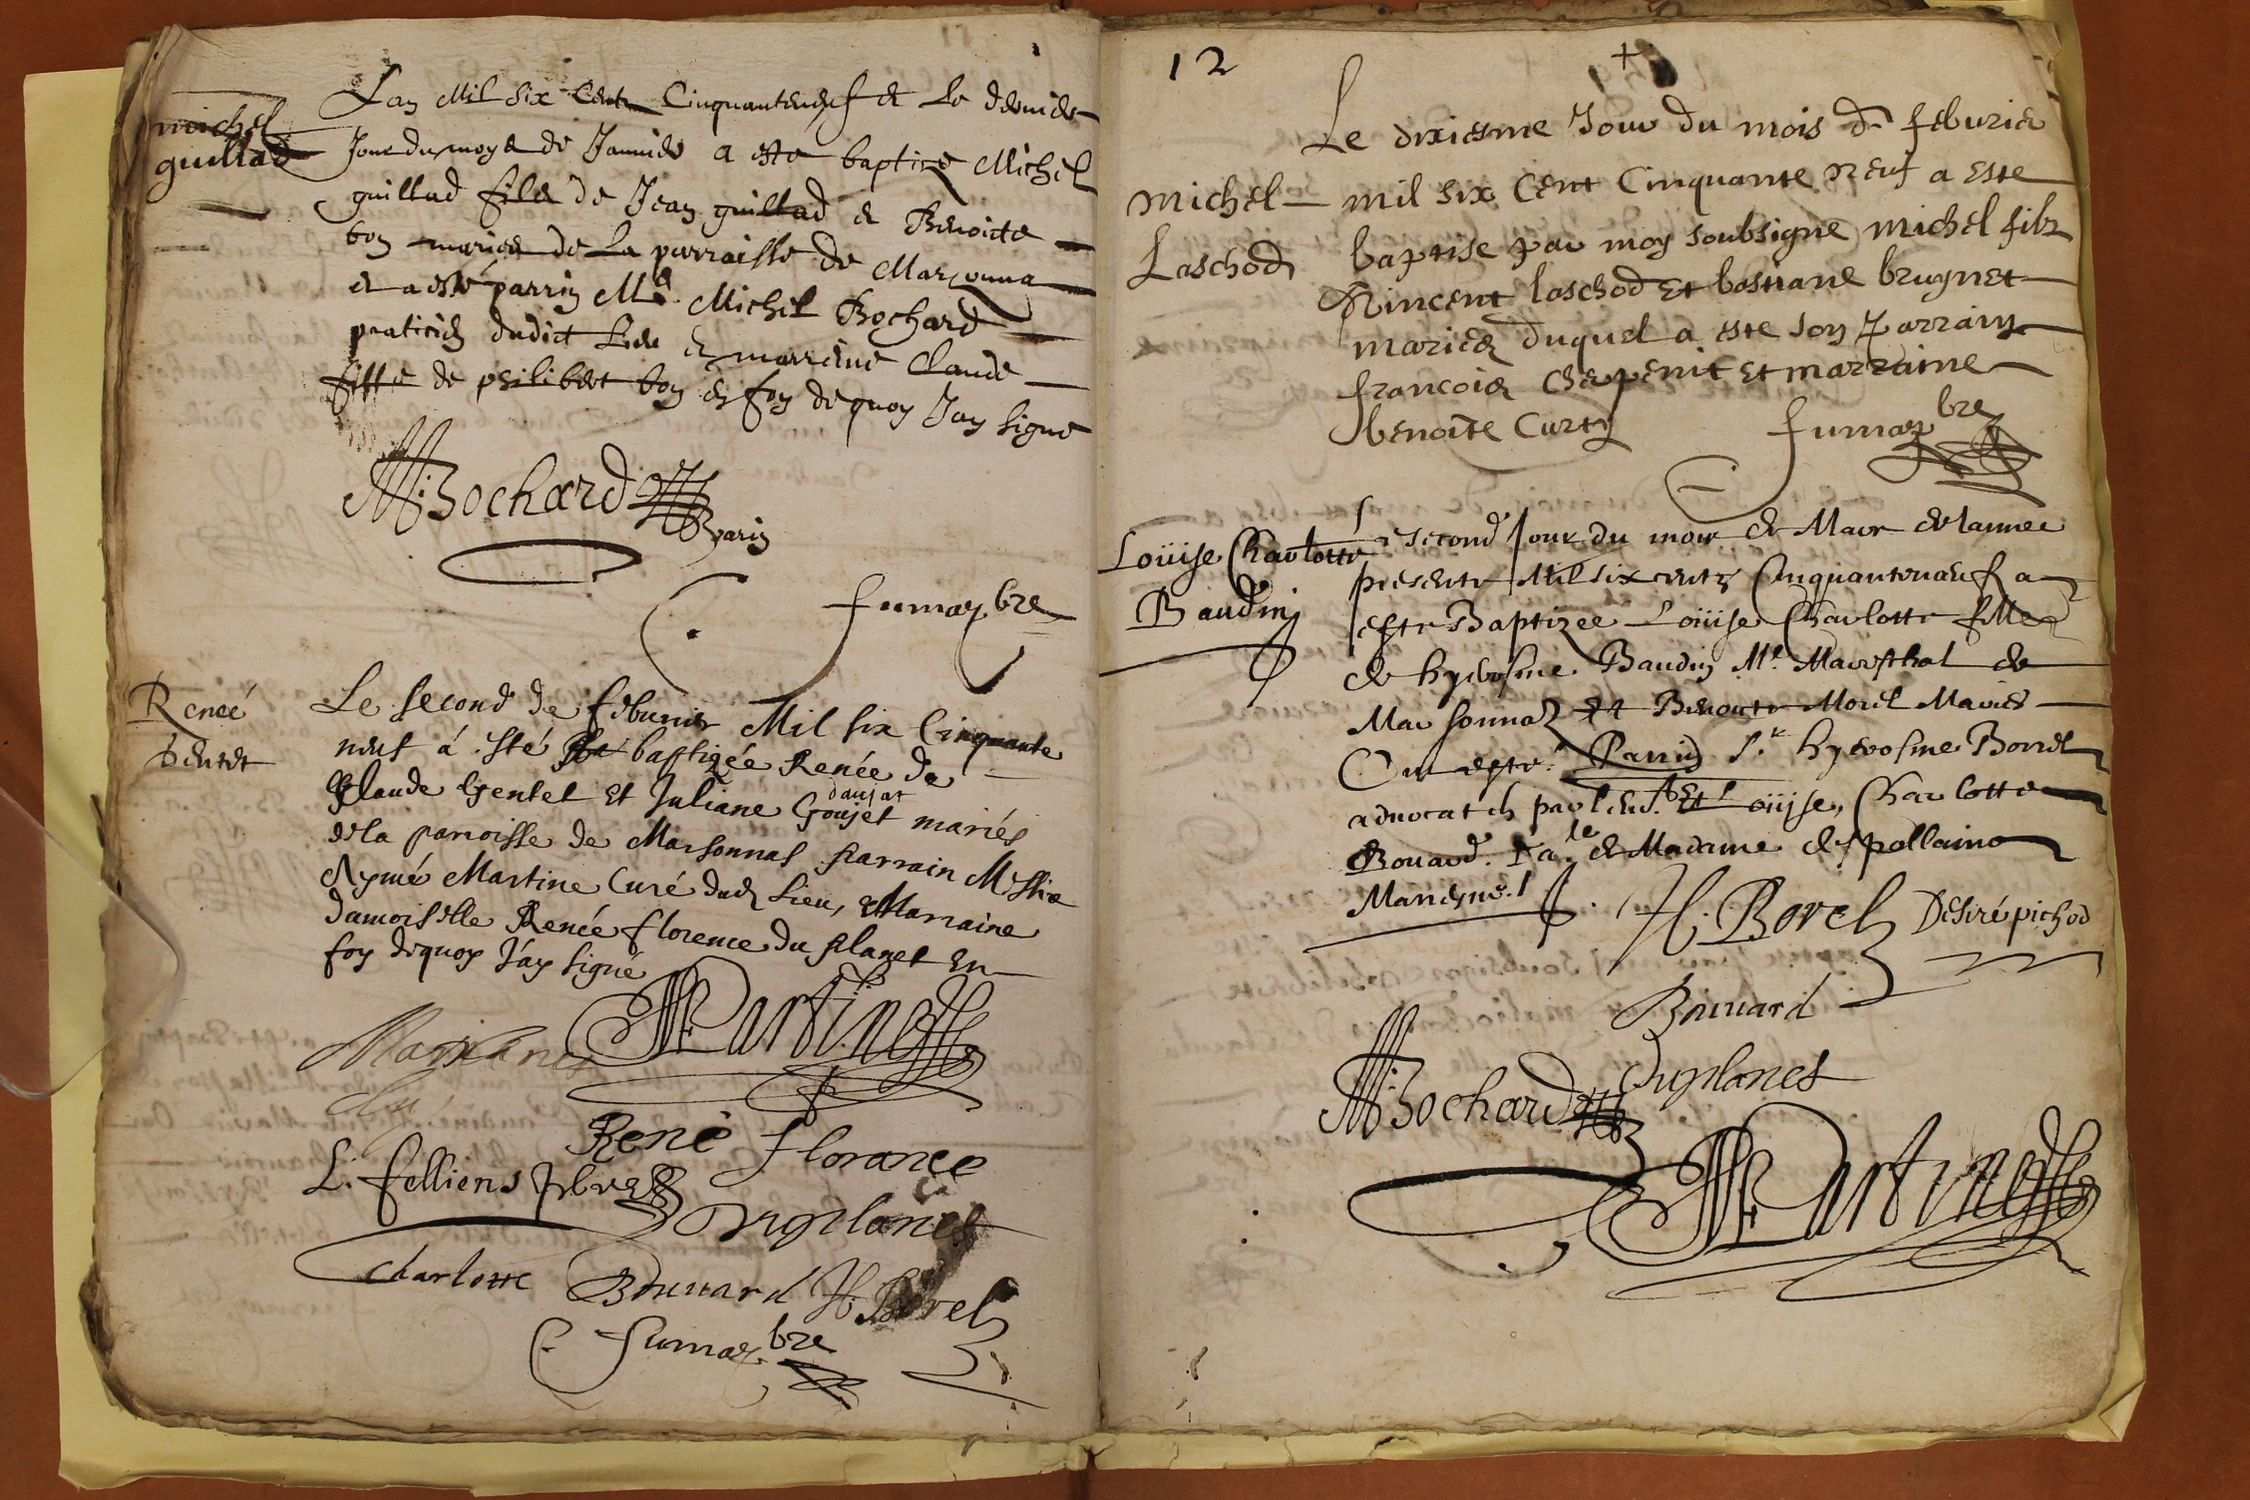 michel
guillad
Lan Mil six Cent Cinquanteneuf & Le dernier
Jour du moys de Januier a este baptize Michel
guillad filz de Jean guillad & Benoicte
bon mariez de La parroisse de Marsonna
& a esté parrin Me. Michel Bochard
praticien dudict Lieu & marreine Claude
fille de philibert bon en foy dequoy Jay signe
M: Bochard
Parin
fumay bre
Renée
Gentet
Le second de feburier Mil six Cinquante
neuf á esté baptizée Renée de
Claude Gentet Et Juliane Goujet mariés
daujat
de la parroisse de Marsonnas parrain Messire
Aymé Martine Curé dud Lieu, & Marraine
damoiselle Renée florence du planet En
foy dequoy J'ay signé
Martine
Martine
René florance
L. felliens pbre
Duplanet
Charlotte Bouuard H. Borel
fumay bre
12
+
Le dixiesme Jour du mois de feburier
michel
Laschod
mil six Cent Cinquante neuf a este
baptise par moy soubsigne michel filz
Vincent laschod et bastiane brugnet
mariez duquel a este son parrain
francois cherpenit et marraine
benoite Curt
fumay bre
Loüise Charlotte
Baudin
Le second Jour du mois de Mars de lannee
presente Mil six centz Cinquanteneuf a
este Baptizee Loüise Charlotte fille
de hyerosme Baudin Me. Mareschal de
Marsonnaz et Benoicte Morel Mariés
Ont esté Parrin Sr. hyerosme Borrel
aduocat en parlemt. Et Loüise, Charlotte
Bouard. fa.le de Madame de Spallaino
Marreyne.
H. Borel
Desiré pichod
Bouuard
M: Bochard
Duplanet
Martine